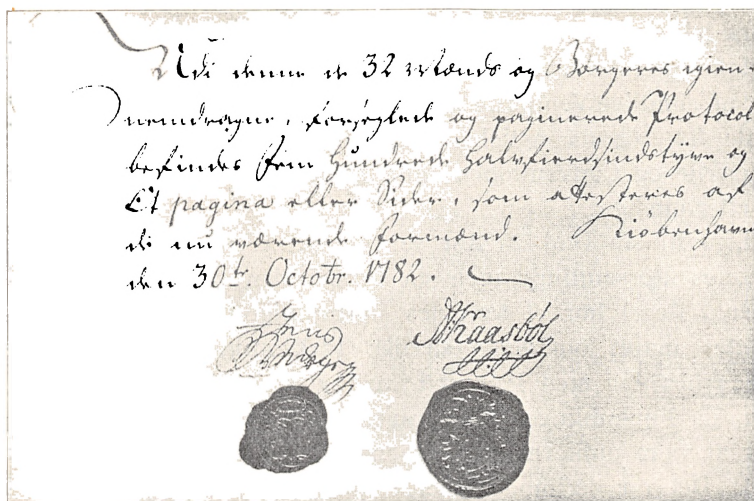 Udi denne de 32 Mænds og Borgeres igien-
nemdragne, forseglede og paginerede Protocol
befindes Fem Hundrede Halvfierdsindstyve og
Et pagina eller Sider, som attesteres af
de nu værende Formænd. Kiöbenhavn
den 30te. Octobr. 1782.
Jens
Kaasböl